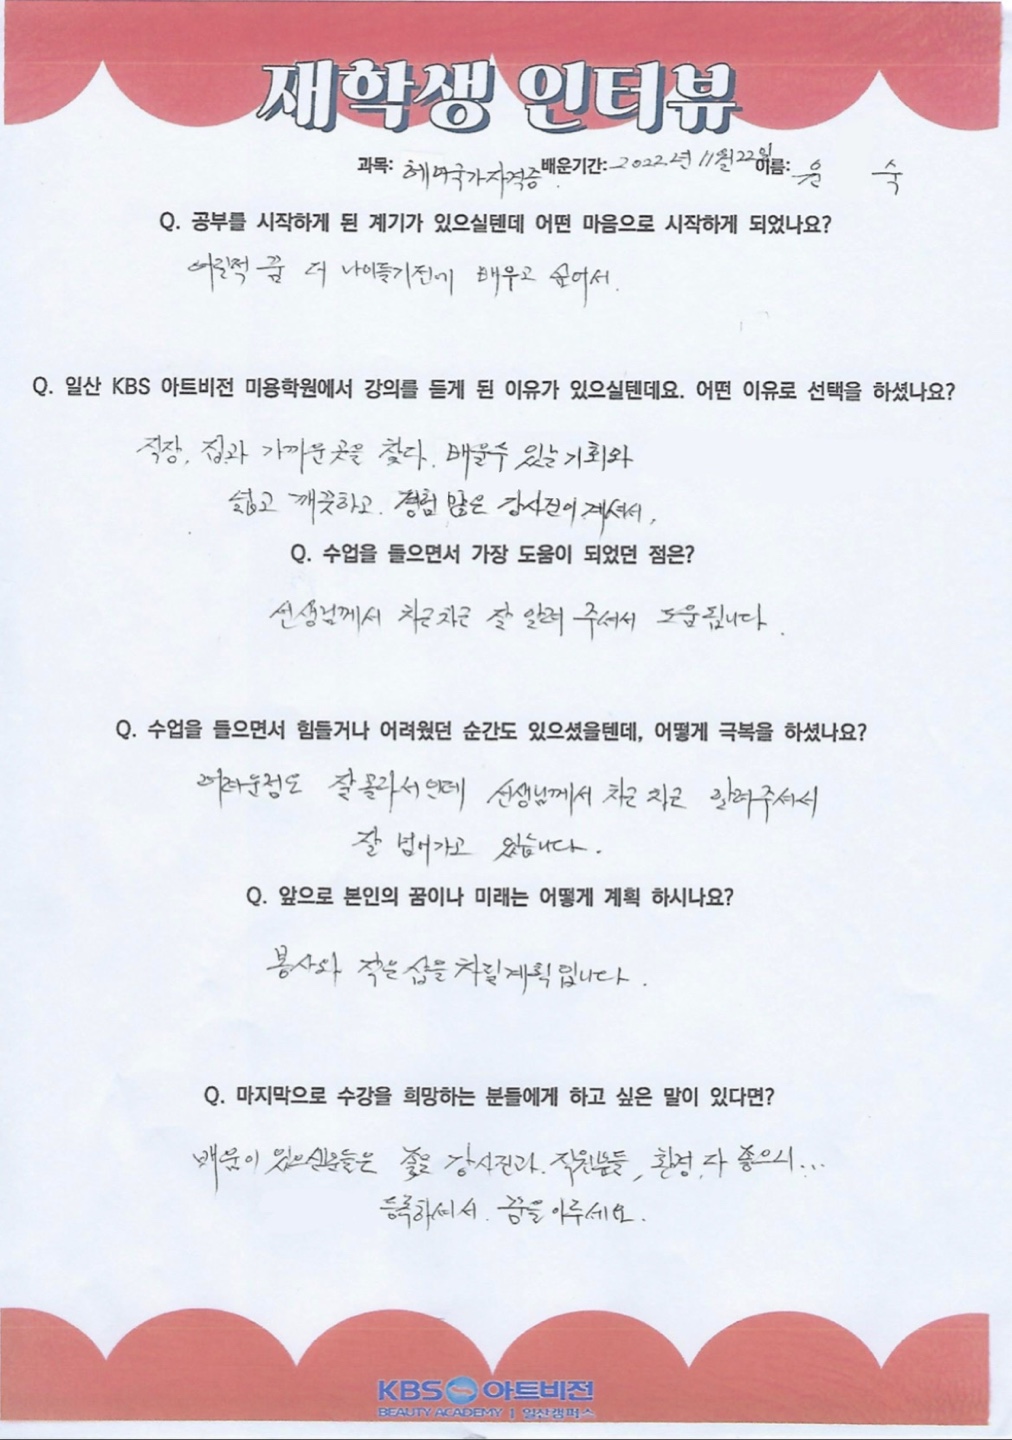 재학생 인터뷰
과목: 헤어국가자격증 배운기간: 2022년 11월 22일 이름: 윤 숙
Q. 공부를 시작하게 된 계기가 있으실텐데 어떤 마음으로 시작하게 되었나요?
어릴적 꿈 더 나이들기전에 배우고 싶어서.
Q. 일산 KBS 아트비전 미용학원에서 강의를 듣게 된 이유가 있으실텐데요. 어떤 이유로 선택을 하셨나요?
직장, 집과 가까운곳을 찾다. 배울수 있는 기회와
쉽고 깨끗하고. 경험 많은 강사진이 계셔서,
Q. 수업을 들으면서 가장 도움이 되었던 점은?
선생님께서 차근차근 잘 알려 주셔서 도움됩니다.
Q. 수업을 들으면서 힘들거나 어려웠던 순간도 있으셨을텐데, 어떻게 극복을 하셨나요?
어려운점도 잘몰라서인데 선생님께서 차근 차근 알려주셔서
잘 넘어가고 있습니다.
Q. 앞으로 본인의 꿈이나 미래는 어떻게 계획 하시나요?
봉사와 작은 샵을 차릴계획입니다.
Q. 마지막으로 수강을 희망하는 분들에게 하고 싶은 말이 있다면?
배움이 있으신분들은 좋은 강사진과. 직원분들, 환경, 다 좋으니...
등록하셔서. 꿈을 이루세요.
KBS 아트비전
BEAUTY ACADEMY | 일산캠퍼스